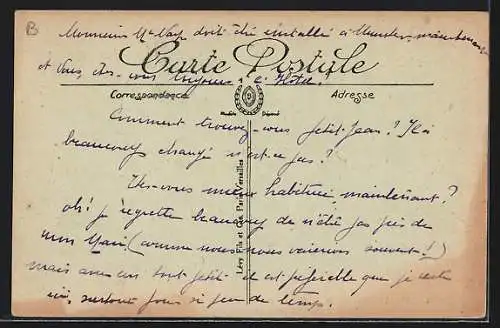 B
Monsieur Mc Nay doit être installé à Munster, maintenant
et vous, êtes-vous toujours à l'Hôtel.
Carte Postale
Correspondance
Adresse
Modèle Déposé
Comment trouvez-vous petit Jean? Il a
beaucoup changé n'est-ce pas?
Lévy Fils et Cie Paris-Versailles
Êtes-vous mieux habituée, maintenant?
oh! je regrette beaucoup de n'être pas près de
mon Mari (comme nous nous verrions souvent!)
mais avec un tout petit - il est préférable que je reste
ici, surtout pour si peu de temps.